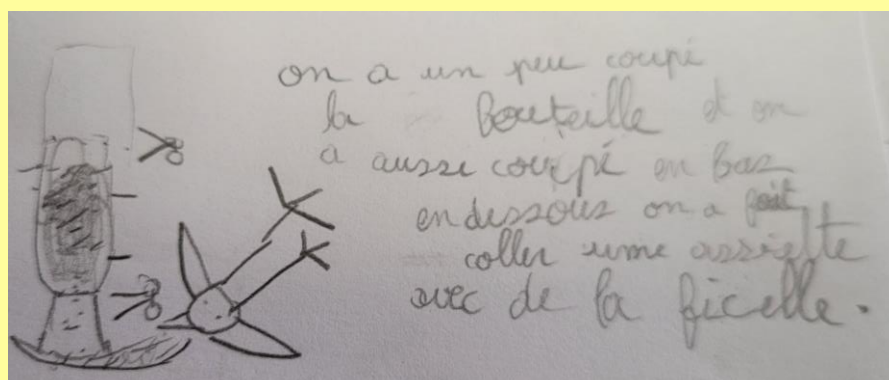 on a un peu coupé
la bouteille et on
a aussi coupé en bas
en dessous on a fait
coller une assiette
avec de la ficelle.